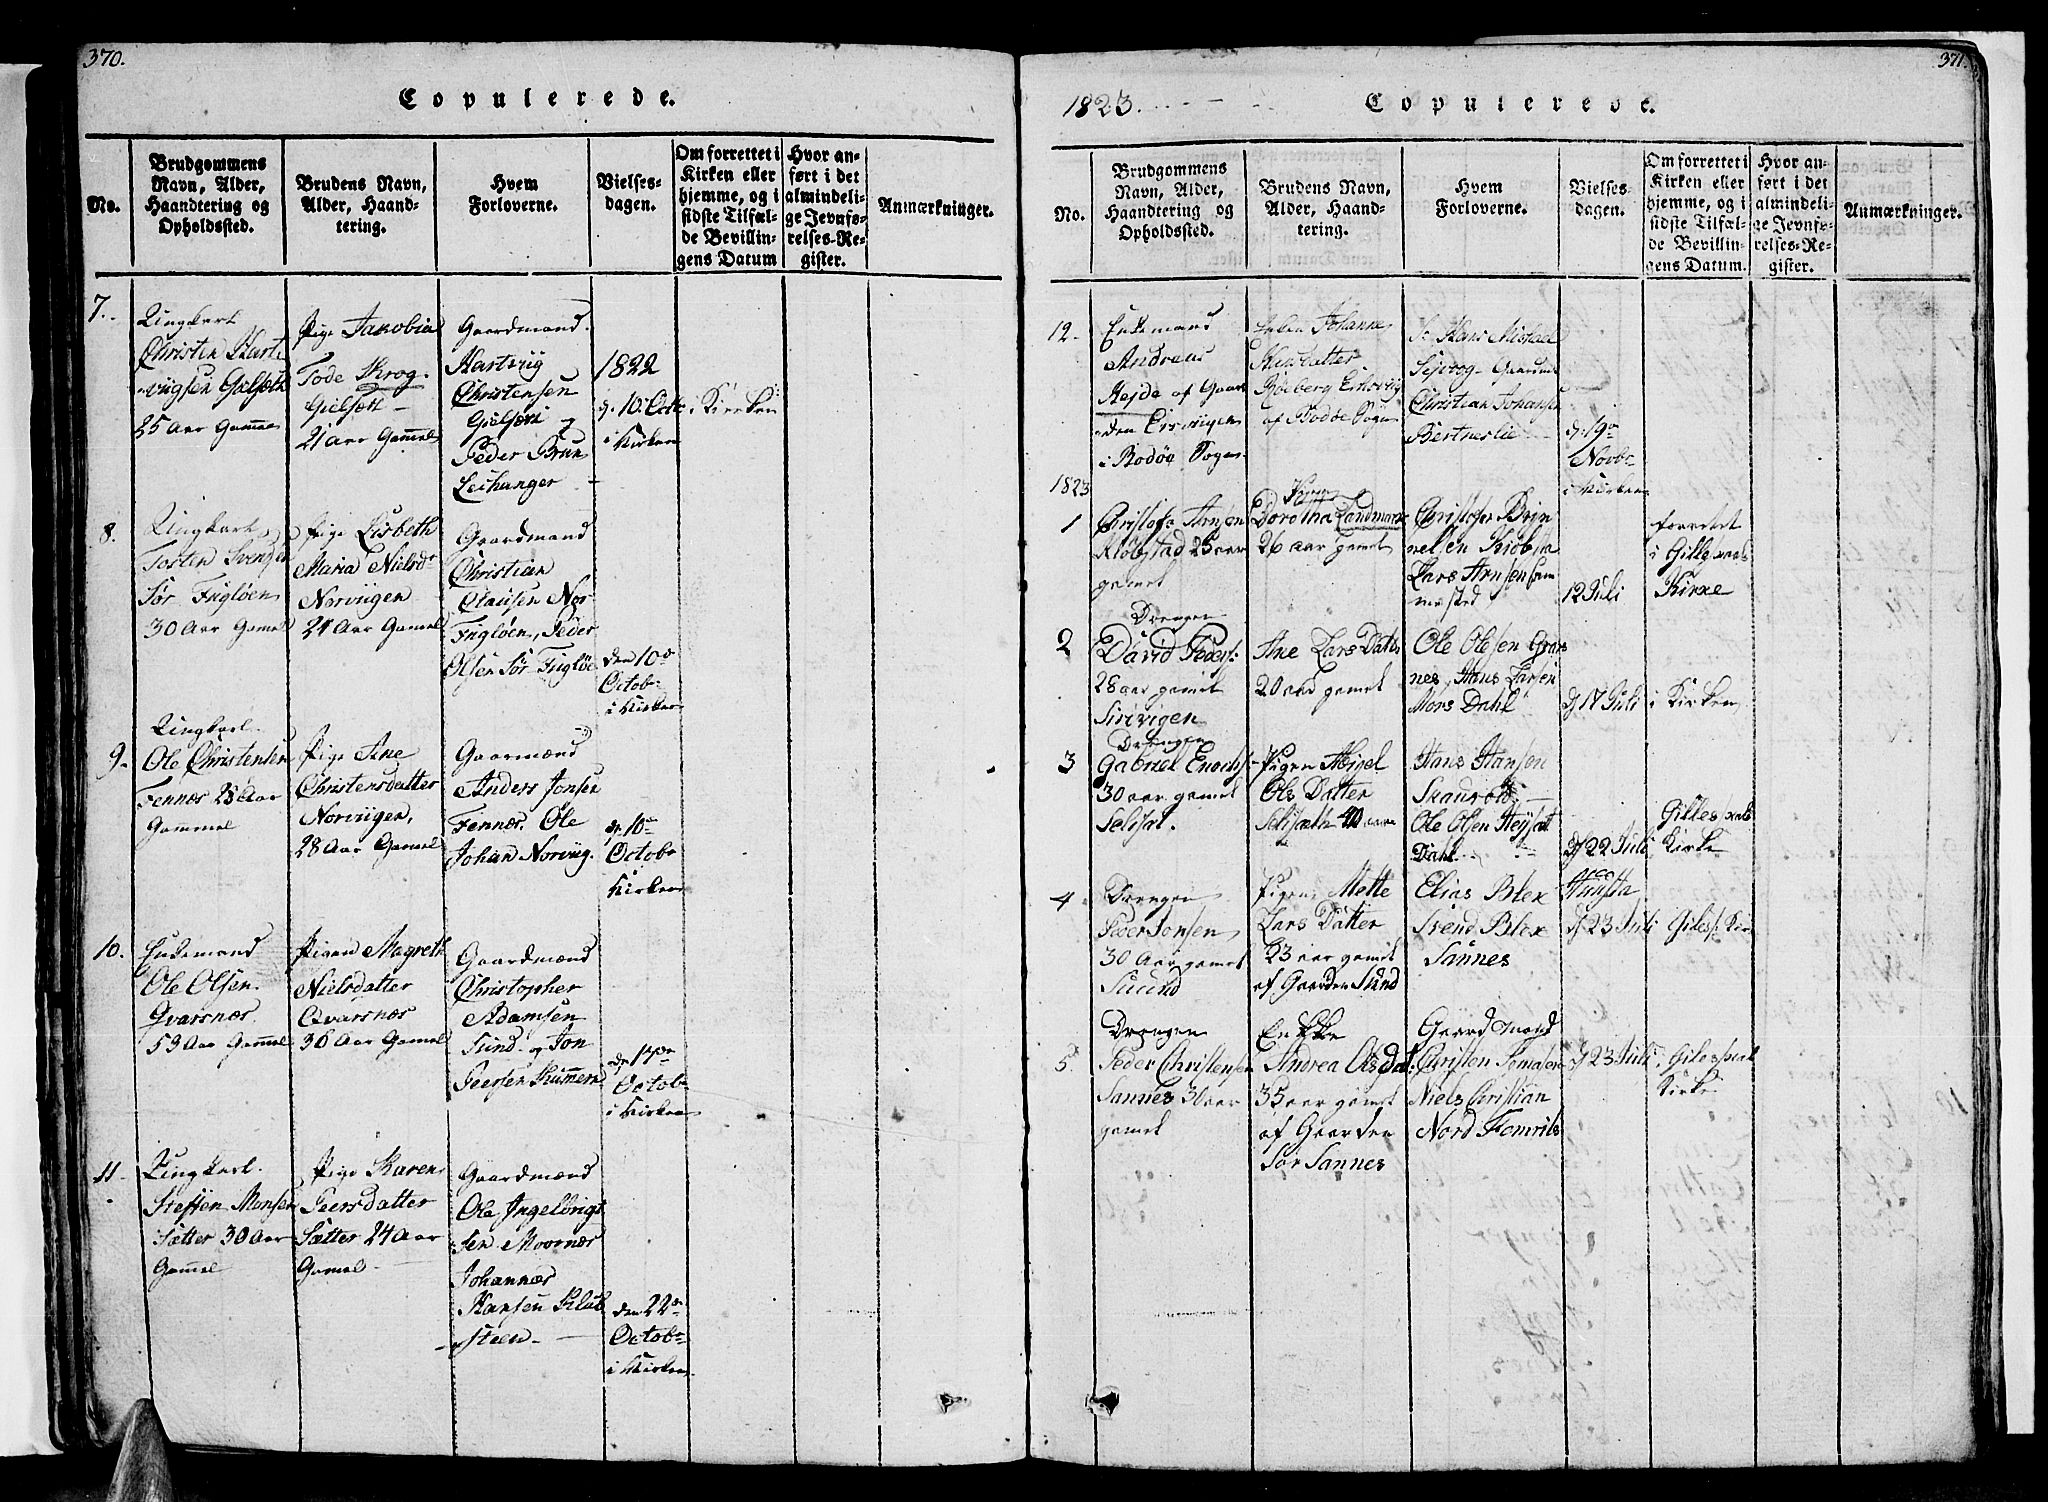 370.
Copulerede.
No.
Brudgommens
Navn, Alder,
Haandtering og
Opholdssted.
Brudens Navn,
Alder, Haand-
tering.
Hvem
Forloverne.
Vielses-
dagen.
Om forrettet i
Kirken eller
hjemme, og i
sidste Tilfæl-
de Bevillin-
gens Datum
Hvor an-
ført i det
almindeli-
ge Jevnfø-
relses-Re-
gister.
Anmærkninger.
7.
Ungkarl
Christen Hart-
vigsen
25 Aar Gammel
Pige Jakobia
Tode Skrog
21 Aar Gammel
Gaardmænd
Hartvig
Christensen
og
Peder Brun
Leihanger
1822
d. 10de Octb.
i Kirken
i Kirken
8.
Ungkarl
Tosten Svendsen
Sør Fugløen
30 Aar Gamel
Pige Lisbeth
Maria Nielsd.
Norvigen
Aar Gamel
Gaardmænd
Christian
Olausen Nor-
Fugløen, Peder
Olsen Sør Fugløe
den 10de
Octob.
i Kirken
9.
Ungkarl
Ole Christensen
Fennes 28 Aar
Gammel
Pige Ane
Christensdatter
Norvigen,
28 Aar Gamel
Gaarmænd
Anders Jonsen
Fennes. Ole
Johan Norvig.
d. 10de
Octobr
i Kirken
10.
Enkemand
Ole Olsen
Qvarsnæs
53 Aar Gammel
Pigen Magreth
Nielsdatter
Qvarsnæs
36 Aar Gamel
Gaardmænd
Christopher
Adamsen
Sund og Jon
Peersen
Octob.
i Kirken
11.
Ungkarl
Steffen Monsen
Sætter 30 Aar
Gamel
Pige Karen
Peersdatter
Sætter 24 Aar
Gamel
Gaardmænd
Ole
sen
Johannes
Hansen Klub-
steen
den 22de
Octob.
i Kirken
371.
1823.
Copulerede.
No.
Brudgommens
Navn, Alder,
Haandtering og
Opholdssted.
Brudens Navn,
Alder, Haand-
tering.
Hvem
Forloverne.
Vielses-
dagen.
Om forrettet i
Kirken eller
hjemme, og i
sidste Tilfæl-
de Bevillin-
gens Datum.
Hvor an-
ført i det
almindeli-
ge Jevnfø-
relses-Re-
gister.
Anmærkninger.
12.
Enkemand
Andreas
Hejde af Gaar-
den
i Bodøe Sogn
Johanne
af Bodøe Sogn
Hans
Christian Johansen
Bertneslie
d. 19de
Novb.
i Kirken
1823
1
Christofer Arnsen
25 aar
gamel
Dorotha Landmark
26 aar gamel
Christofer
Lars Arnsen
12 Juli
forrettet
i Gillesaals
Kirke
2
Drengen
David Peders.
28 aar gamel
Ane Lars Datter
20 aar gamel
Ole Olesen Qvars
nes, Hans Larsen
Mors Dahl
d. 17 Juli
i Kirken
3
Drengen
Gabriel Enochs.
30 aar gamel
Selisæt.
Pigen Abigel
Ols Datter
Selisæth 40 aar
Hans Hansen
Ole Olsen
Dahl
d. 22 Juli
Gillesaals
Kirke
4.
Drengen
Peder Jonsen
30 Aar gamel
Suund
Pigen Mette
Lars Datter
23 aar gamel
af Gaarden Sund
Elias Blex
Svend Blex
Sannes
d. 23 Juli
5.
Drengen
Peder Christensen
Sannes 30 aar
gamel
Enkke
Andrea
35 aar gamel
af Gaarden
Sør Sannes
Gaardmænd
Christen
Niels Christian
Nord
d. 23 Juli
Kirke